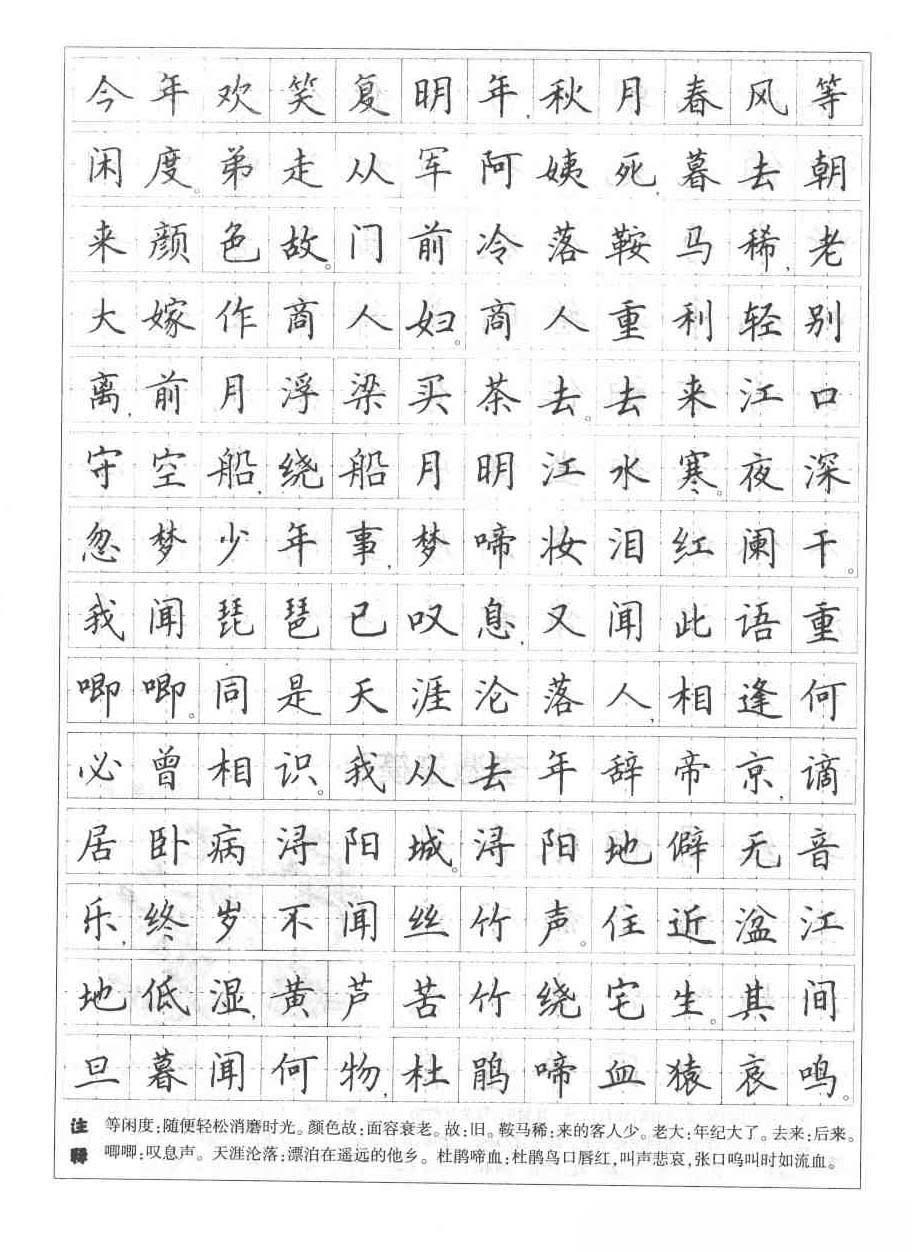 今年欢笑复明年,秋月春风等
闲度。弟走从军阿姨死,暮去朝
来颜色故。门前冷落鞍马稀,老
大嫁作商人妇。商人重利轻别
离,前月浮梁买茶去。去来江口
守空船,绕船月明江水寒。夜深
忽梦少年事,梦啼妆泪红阑干。
我闻琵琶已叹息,又闻此语重
唧唧。同是天涯沦落人,相逢何
必曾相识。我从去年辞帝京,谪
居卧病浔阳城。浔阳地僻无音
乐,终岁不闻丝竹声。住近湓江
地低湿,黄芦苦竹绕宅生。其间
旦暮闻何物,杜鹃啼血猿哀鸣。
注释 等闲度:随便轻松消磨时光。颜色故:面容衰老。故:旧。鞍马稀:来的客人少。老大:年纪大了。去来:后来。
唧唧:叹息声。天涯沦落:漂泊在遥远的他乡。杜鹃啼血:杜鹃鸟口唇红,叫声悲哀,张口鸣叫时如流血。